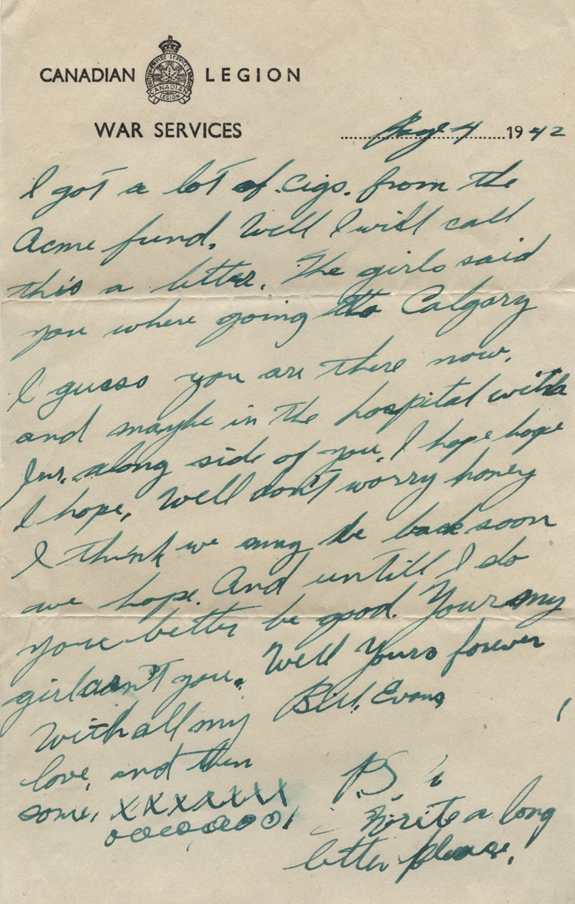 CANADIAN LEGION
WAR SERVICES
Page 4 1942
I got a lot of cigs. from the
Acme fund. Well I will call
this a letter. The girls said
you where going to Calgary
I guess you are there now.
and maybe in the hospital with
Jnr. along side of you. I hope hope
I hope. Well don't worry honey
I think we may be back soon
we hope. And untill I do
you better be good. Your my
girl arn't you. Well Yours forever
With all my Bill Evans
love, and then
some, XXXXXXXX
ooooooooo
P.S.
Write a long
letter please.